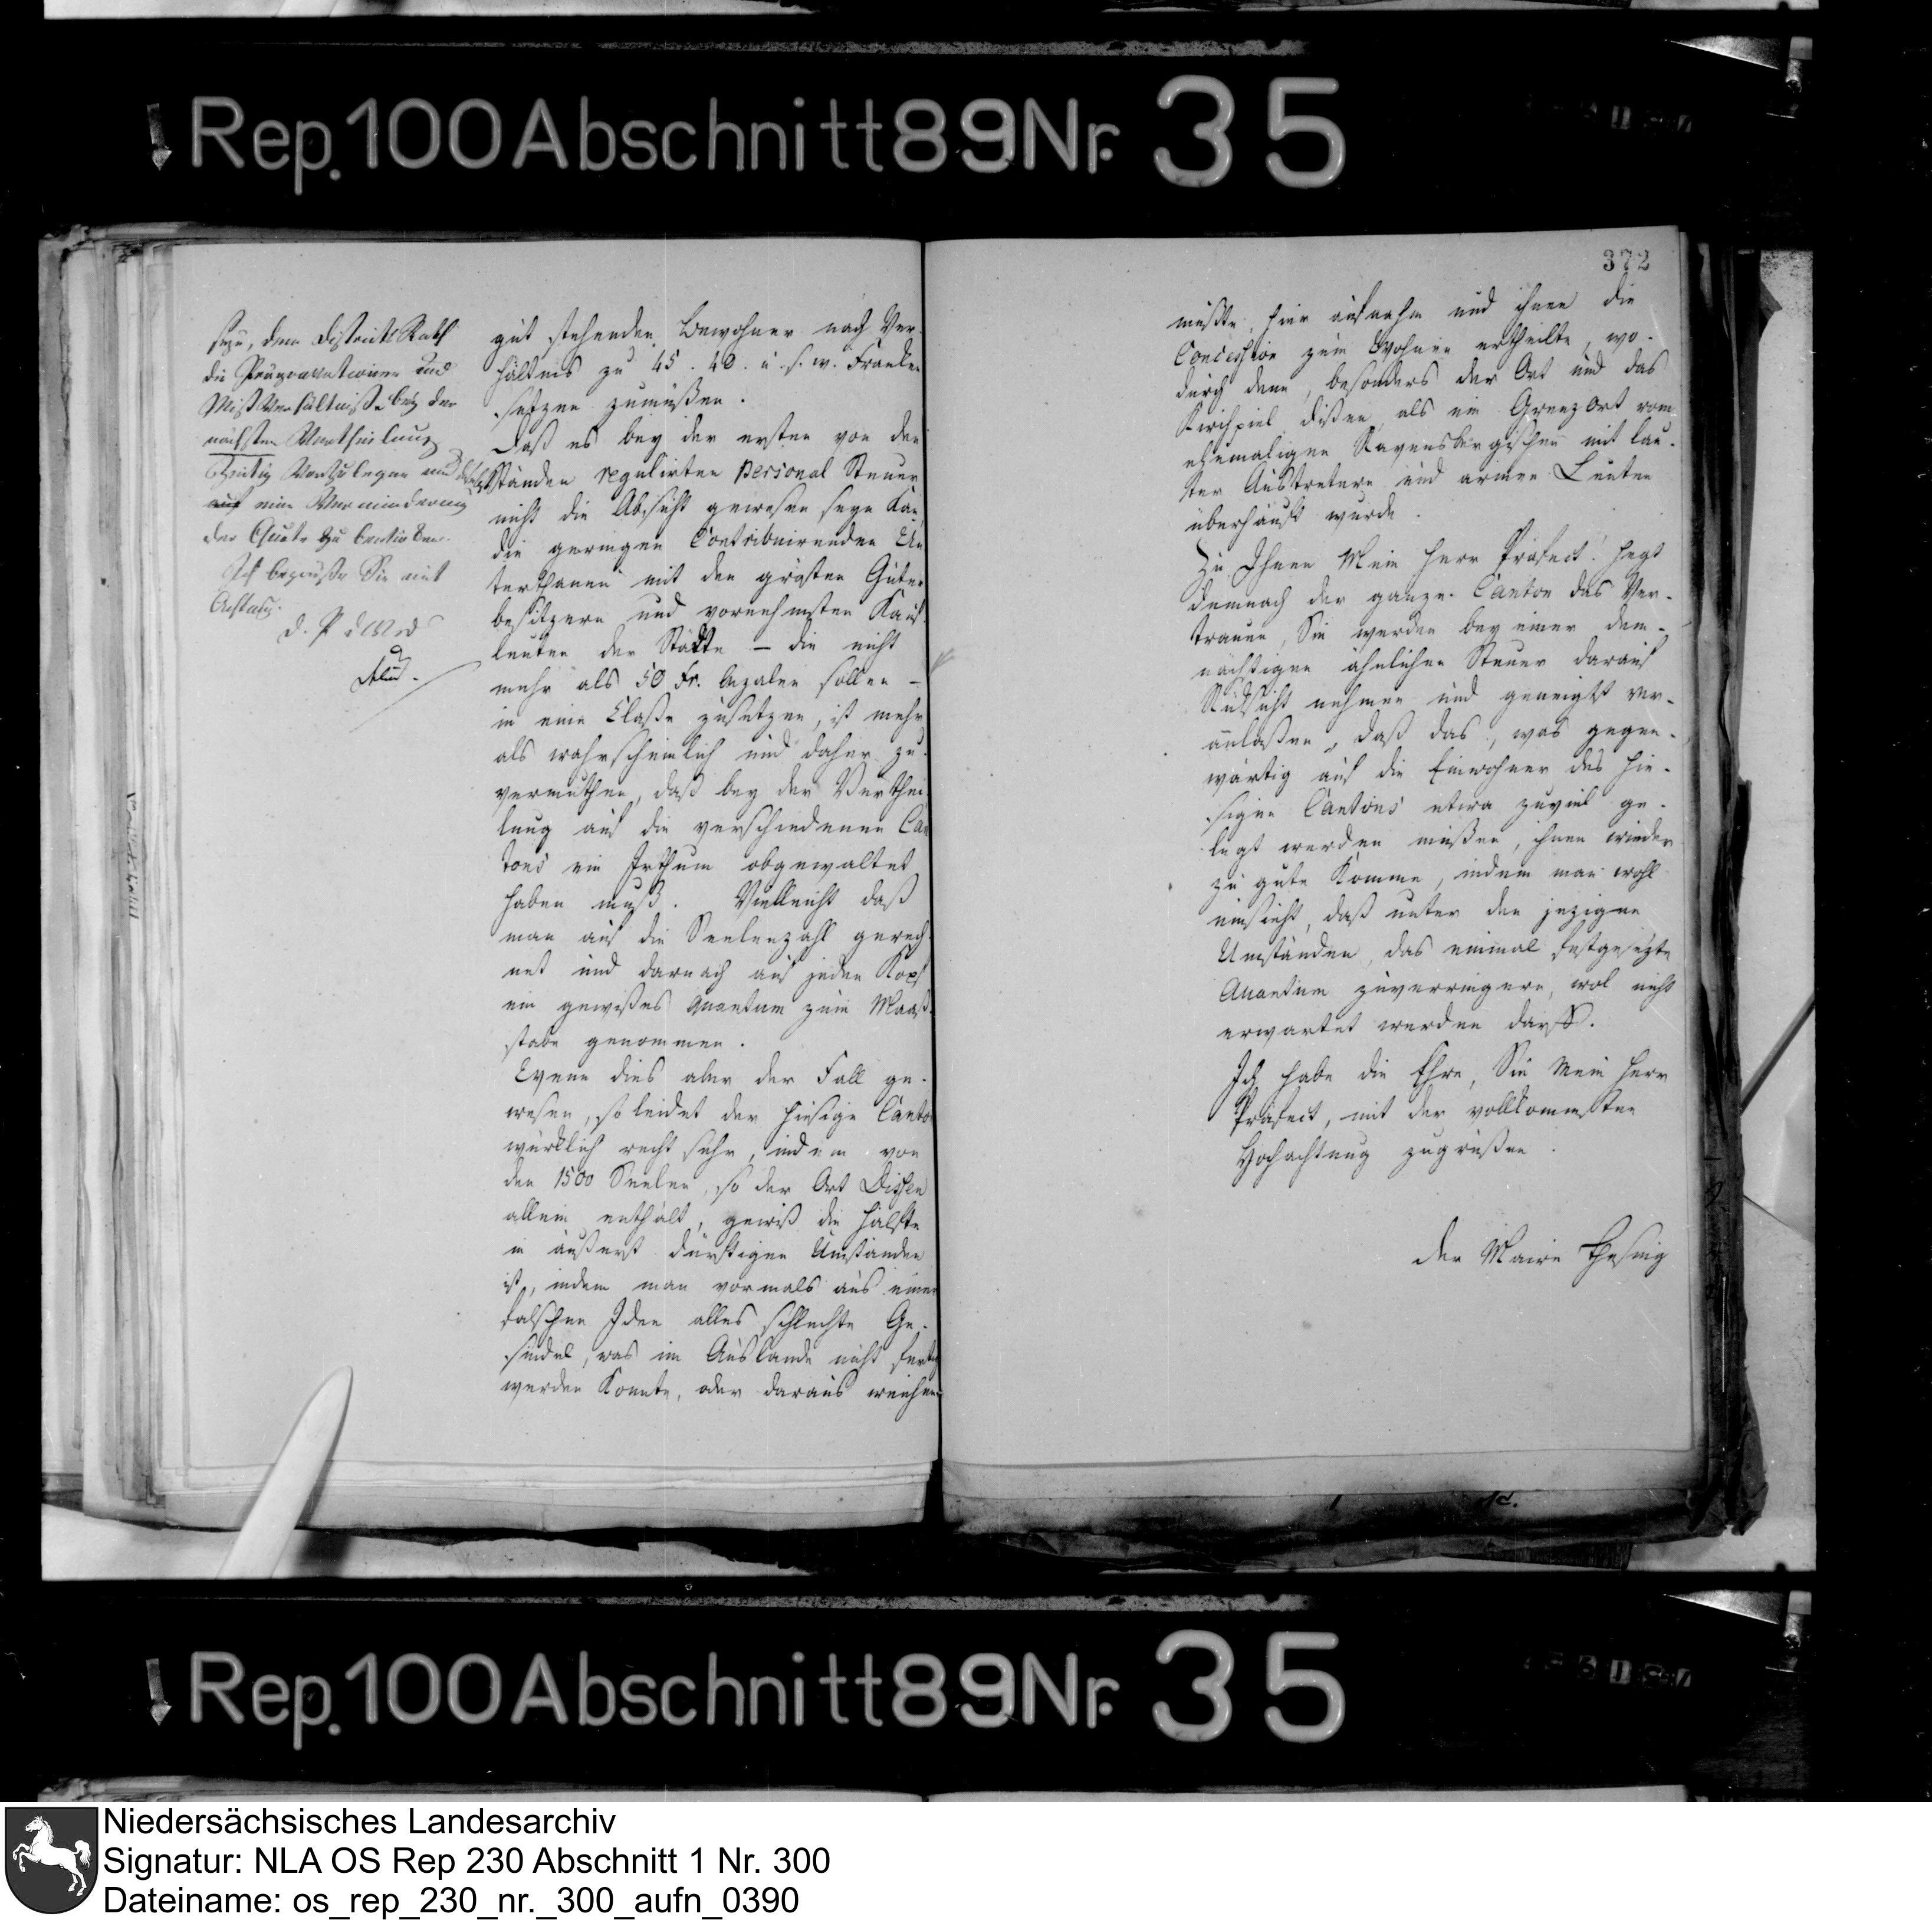 Rep. 100 Abschnitt 89 Nr. 35
seye, dem Districts Rath
die Praegravationen und
Miß Verhältniße bey der
nächsten Vertheilung
vorzulegen und
auf eine Verminderung
der Quote zu
Ich begrüße Sie mit
Achtung.
gut stehenden Bewohner nach Ver-
hältnis zu 45. 40. u. s. w. Franken
setzen zumüßen.
Daß es bey der ersten von den
Ständen regulirten Personal Steuer
nicht die Absicht gewesen seyn kan,
die geringen Contribuirenden Un
terthanen mit den grösten Güter
besitzern und vornehmsten Kauf
leuten der Städte – die nicht
mehr als 50 Fr. bezalen sollen –
in eine Claße zusetzen, ist mehr
als wahrscheinlich und daher zu
vermuthen, daß bey der Verthei
lung auf die verschiedenen Can
tons ein Irthum obgewaltet
haben muß. Vielleicht daß
man auf die Seelenzahl gerech
net und darnach auf jeden Kopf
ein gewißes Quantum zum Maaß-
stabe genommen.
Wenn dies aber der Fall ge-
wesen, so leidet der hiesige Canto
würklich recht sehr, indem von
den 1500 Seelen, so der Ort Dissen
allein enthält, gewiß die Hälfte
in äußerst dürftigen Umständen
ist, indem man vormals aus einer
falschen Idee alles schlechte Ge-
sindel, was im Auslande nicht fertig
werden konnte, oder daraus weichen
372
mußte, hier aufnahm und ihnen die
Concession zum Wohnen ertheilte, wo-
durch denn, besonders der Ort und das
Kirchspiel dißen als ein Grenzort vom
ehemaligen Ravensbergischen mit lau-
ter Austretern und armen Leuten
überhäuft wurde.
Zu Ihnen Mein Herr Präfect! hegt
demnach der ganze Canton das Ver-
trauen, Sie werden bey einer dem-
nächstigen ähnlichen Steuer darauf
Rücksicht nehmen und geneigtst ver-
anlaßen, daß das, was gegen-
wärtig auf die Einwohner des hie-
sigen Cantons etwa zuviel ge-
legt werden müßen, ihnen wieder
zu gute komme, indem man wohl
einsieht, daß unter den jezigen
Umständen, das einmal festgesezte
Quantum zuverringern, wol nicht
erwartet werden darff.
Ich habe die Ehre, Sie mein Herr
Präfect, mit der vollkommsten
Hochachtung zugrüßen.
der Maire
Rep. 100 Abschnitt 89 Nr. 35
Niedersächsisches Landesarchiv
Signatur: NLA OS Rep 230 Abschnitt 1 Nr. 300
Dateiname: os_rep_230_nr._300_aufn_0390